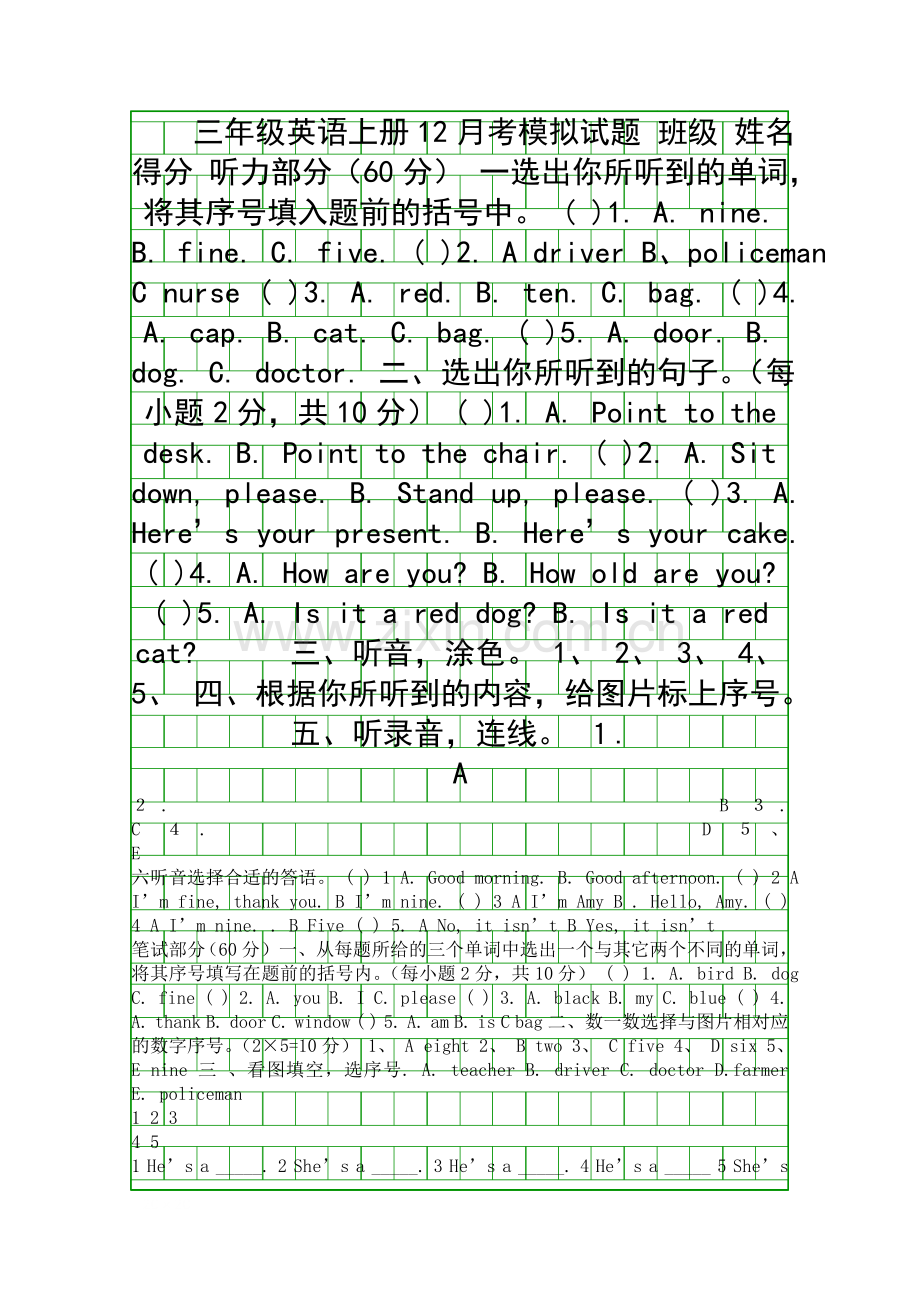 三年级英语上册12月考模拟试题 班级 姓名
得分 听力部分（60分） 一选出你所听到的单词，
将其序号填入题前的括号中。 ( )1. A. nine.
B. fine. C. five. ( )2. A driver B、policeman
C nurse ( )3. A. red. B. ten. C. bag. ( )4.
A. cap. B. cat. C. bag. ( )5. A. door. B.
dog. C. doctor. 二、选出你所听到的句子。（每
小题2分，共10分） ( )1. A. Point to the
desk. B. Point to the chair. ( )2. A. Sit
down, please. B. Stand up, please. ( )3. A.
Here’s your present. B. Here’s your cake.
( )4. A. How are you? B. How old are you?
( )5. A. Is it a red dog? B. Is it a red
www.zixin.com.cn
cat? 三、听音，涂色。 1、 2、 3、 4、
5、 四、根据你所听到的内容，给图片标上序号。
五、听录音，连线。 1.
A
2. B 3.
C 4. D 5、
E
六听音选择合适的答语。 ( ) 1 A. Good morning. B. Good afternoon. ( ) 2 A
I’m fine, thank you. B I’m nine. ( ) 3 A I’m Amy B . Hello, Amy. ( )
4 A I’m nine. . B Five ( ) 5. A No, it isn’t B Yes, it isn’t
笔试部分（60分）一、从每题所给的三个单词中选出一个与其它两个不同的单词，
将其序号填写在题前的括号内。（每小题2分，共10分） ( ) 1. A. bird B. dog
C. fine ( ) 2. A. you B. I C. please ( ) 3. A. black B. my C. blue ( ) 4.
A. thank B. door C. window ( ) 5. A. am B. is C bag 二、数一数选择与图片相对应
的数字序号。（2×5=10分） 1、 A eight 2、 B two 3、 C five 4、 D six 5、
E nine 三 、看图填空，选序号. A. teacher B. driver C. doctor D.farmer
E. policeman
1 2 3
4 5
1 He’s a ____. 2 She’s a ____. 3 He’s a ____. 4 He’s a ____ 5 She’s